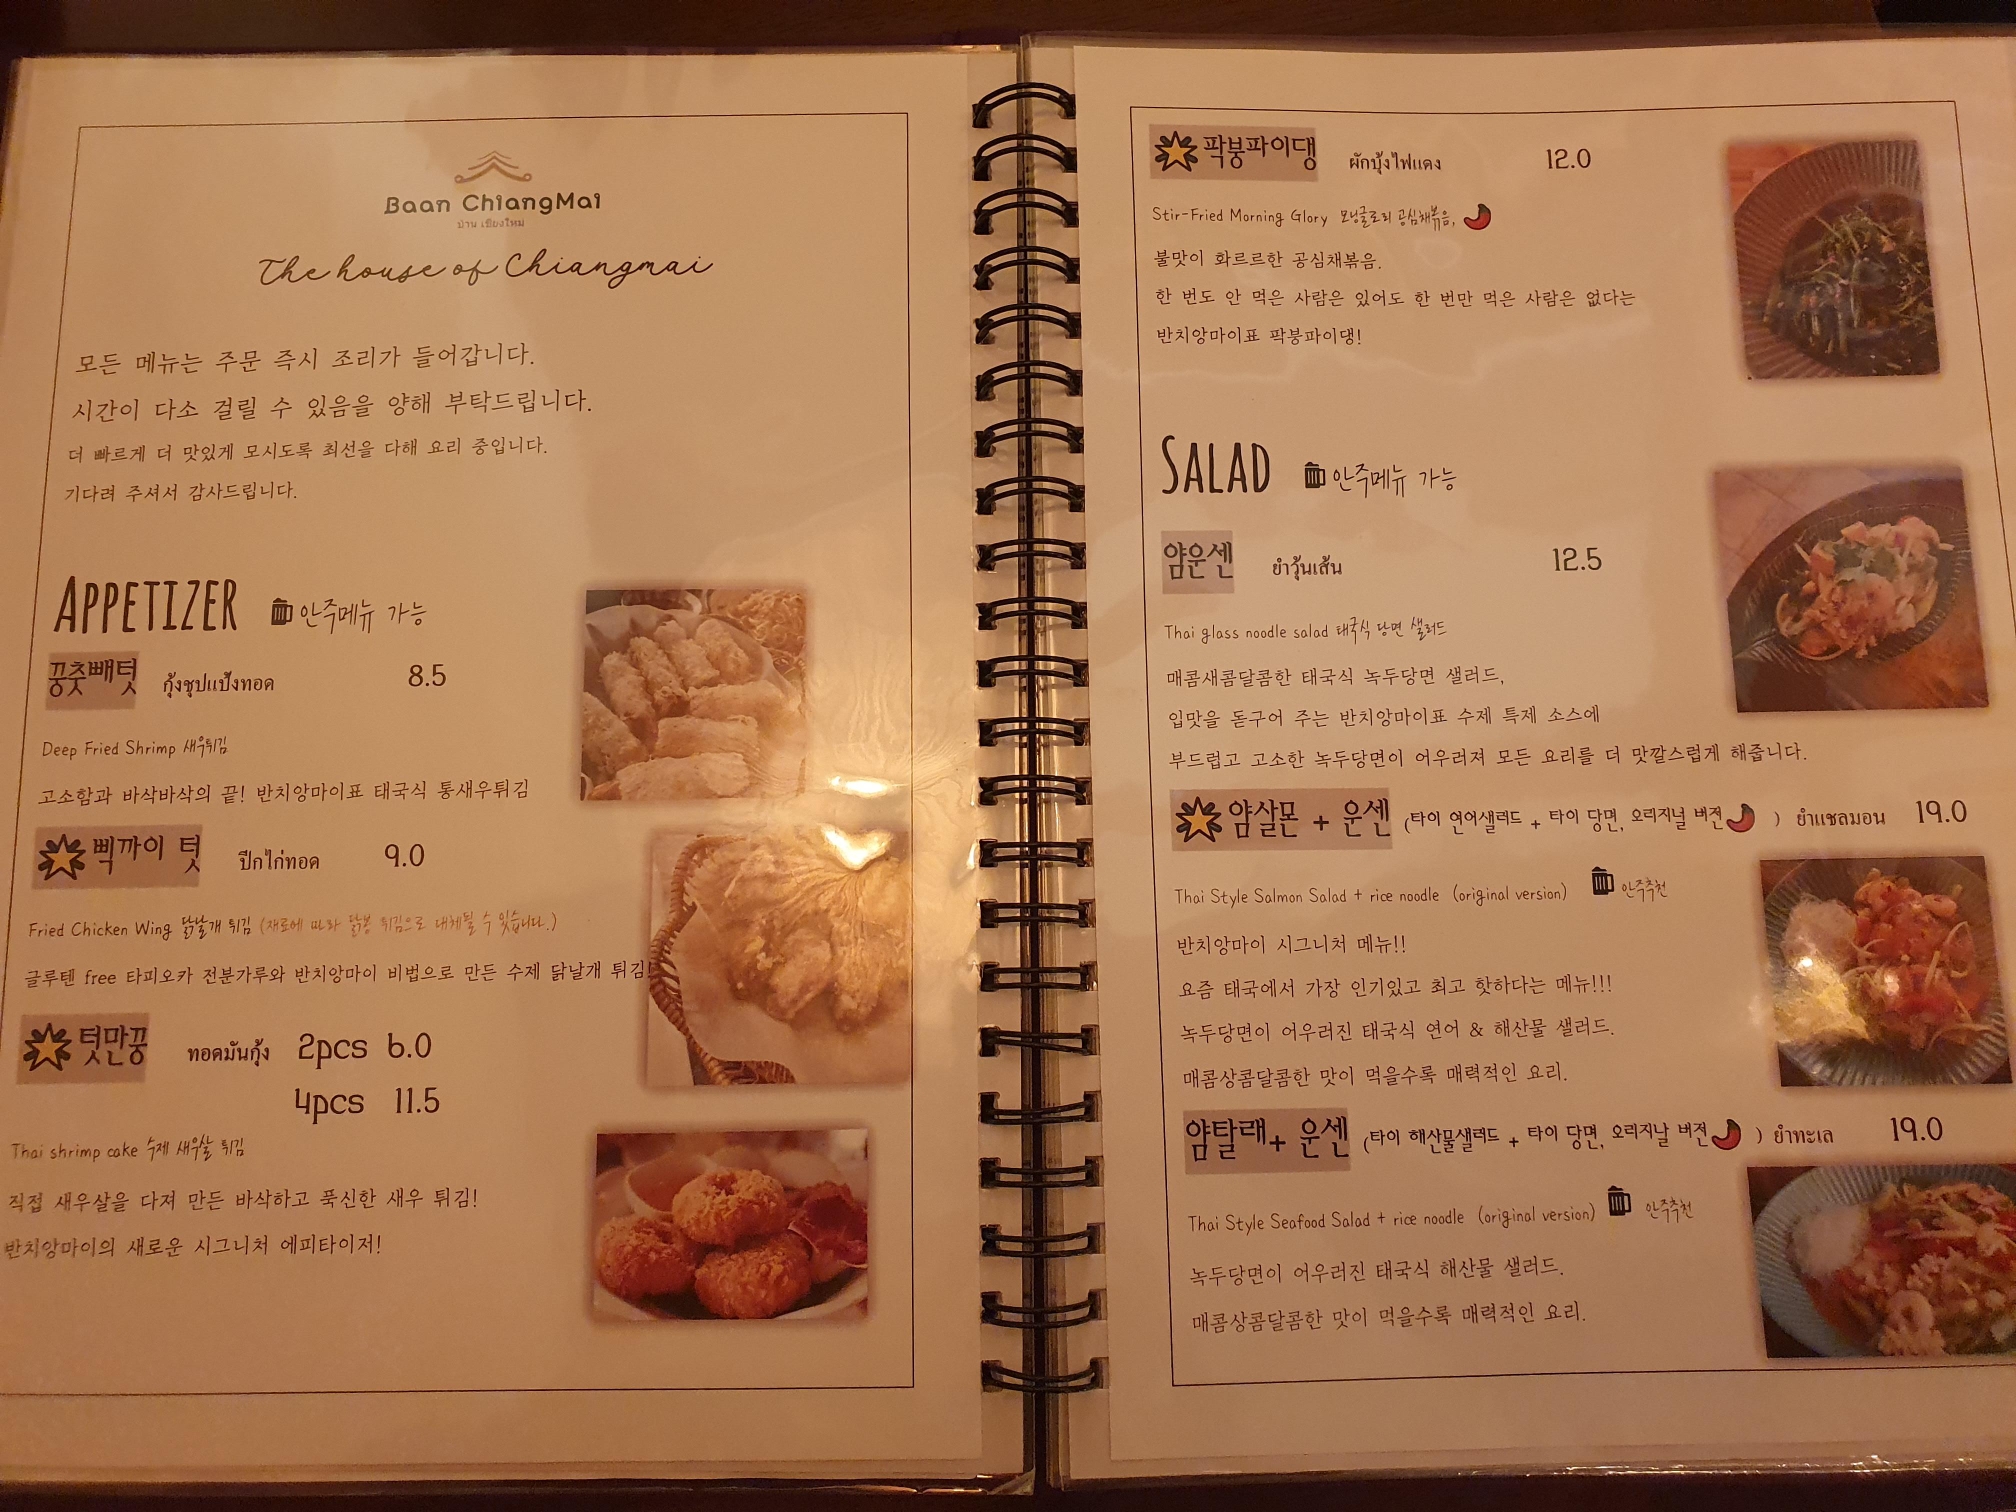 Baan ChiangMai
บ้าน เชียงใหม่
The house of Chiangmai
모든 메뉴는 주문 즉시 조리가 들어갑니다.
시간이 다소 걸릴 수 있음을 양해 부탁드립니다.
더 빠르게 더 맛있게 모시도록 최선을 다해 요리 중입니다.
기다려 주셔서 감사드립니다.
APPETIZER 안주메뉴 가능
꿍춧빼텃 กุ้งชุปแป้งทอด 8.5
Deep Fried Shrimp 새우튀김
고소함과 바삭바삭의 끝! 반치앙마이표 태국식 통새우튀김
삑까이 텃 ปีกไก่ทอด 9.0
Fried Chicken Wing 닭날개 튀김 (재료에 따라 닭봉 튀김으로 대체될 수 있습니다.)
글루텐 free 타피오카 전분가루와 반치앙마이 비법으로 만든 수제 닭날개 튀김!
텃만꿍 ทอดมันกุ้ง 2pcs 6.0
4pcs 11.5
Thai shrimp cake 수제 새우살 튀김
직접 새우살을 다져 만든 바삭하고 푹신한 새우 튀김!
반치앙마이의 새로운 시그니처 에피타이저!
팍붕파이댕 ผักบุ้งไฟแดง 12.0
Stir-Fried Morning Glory 모닝글로리 공심채볶음,
불맛이 화르르한 공심채볶음.
한 번도 안 먹은 사람은 있어도 한 번만 먹은 사람은 없다는
반치앙마이표 팍붕파이댕!
SALAD 안주메뉴 가능
얌운센 ยำวุ้นเส้น 12.5
Thai glass noodle salad 태국식 당면 샐러드
매콤새콤달콤한 태국식 녹두당면 샐러드,
입맛을 돋구어 주는 반치앙마이표 수제 특제 소스에
부드럽고 고소한 녹두당면이 어우러져 모든 요리를 더 맛깔스럽게 해줍니다.
얌살몬 + 운센 (타이 연어샐러드 + 타이 당면, 오리지널 버전 ) ยำแซลมอน 19.0
Thai Style Salmon Salad + rice noodle (original version) 안주추천
반치앙마이 시그니처 메뉴!!
요즘 태국에서 가장 인기있고 최고 핫하다는 메뉴!!!
녹두당면이 어우러진 태국식 연어 & 해산물 샐러드.
매콤상콤달콤한 맛이 먹을수록 매력적인 요리.
얌탈래+ 운센 (타이 해산물샐러드 + 타이 당면, 오리지날 버전 ) ยำทะเล 19.0
Thai Style Seafood Salad + rice noodle (original version) 안주추천
녹두당면이 어우러진 태국식 해산물 샐러드.
매콤상콤달콤한 맛이 먹을수록 매력적인 요리.